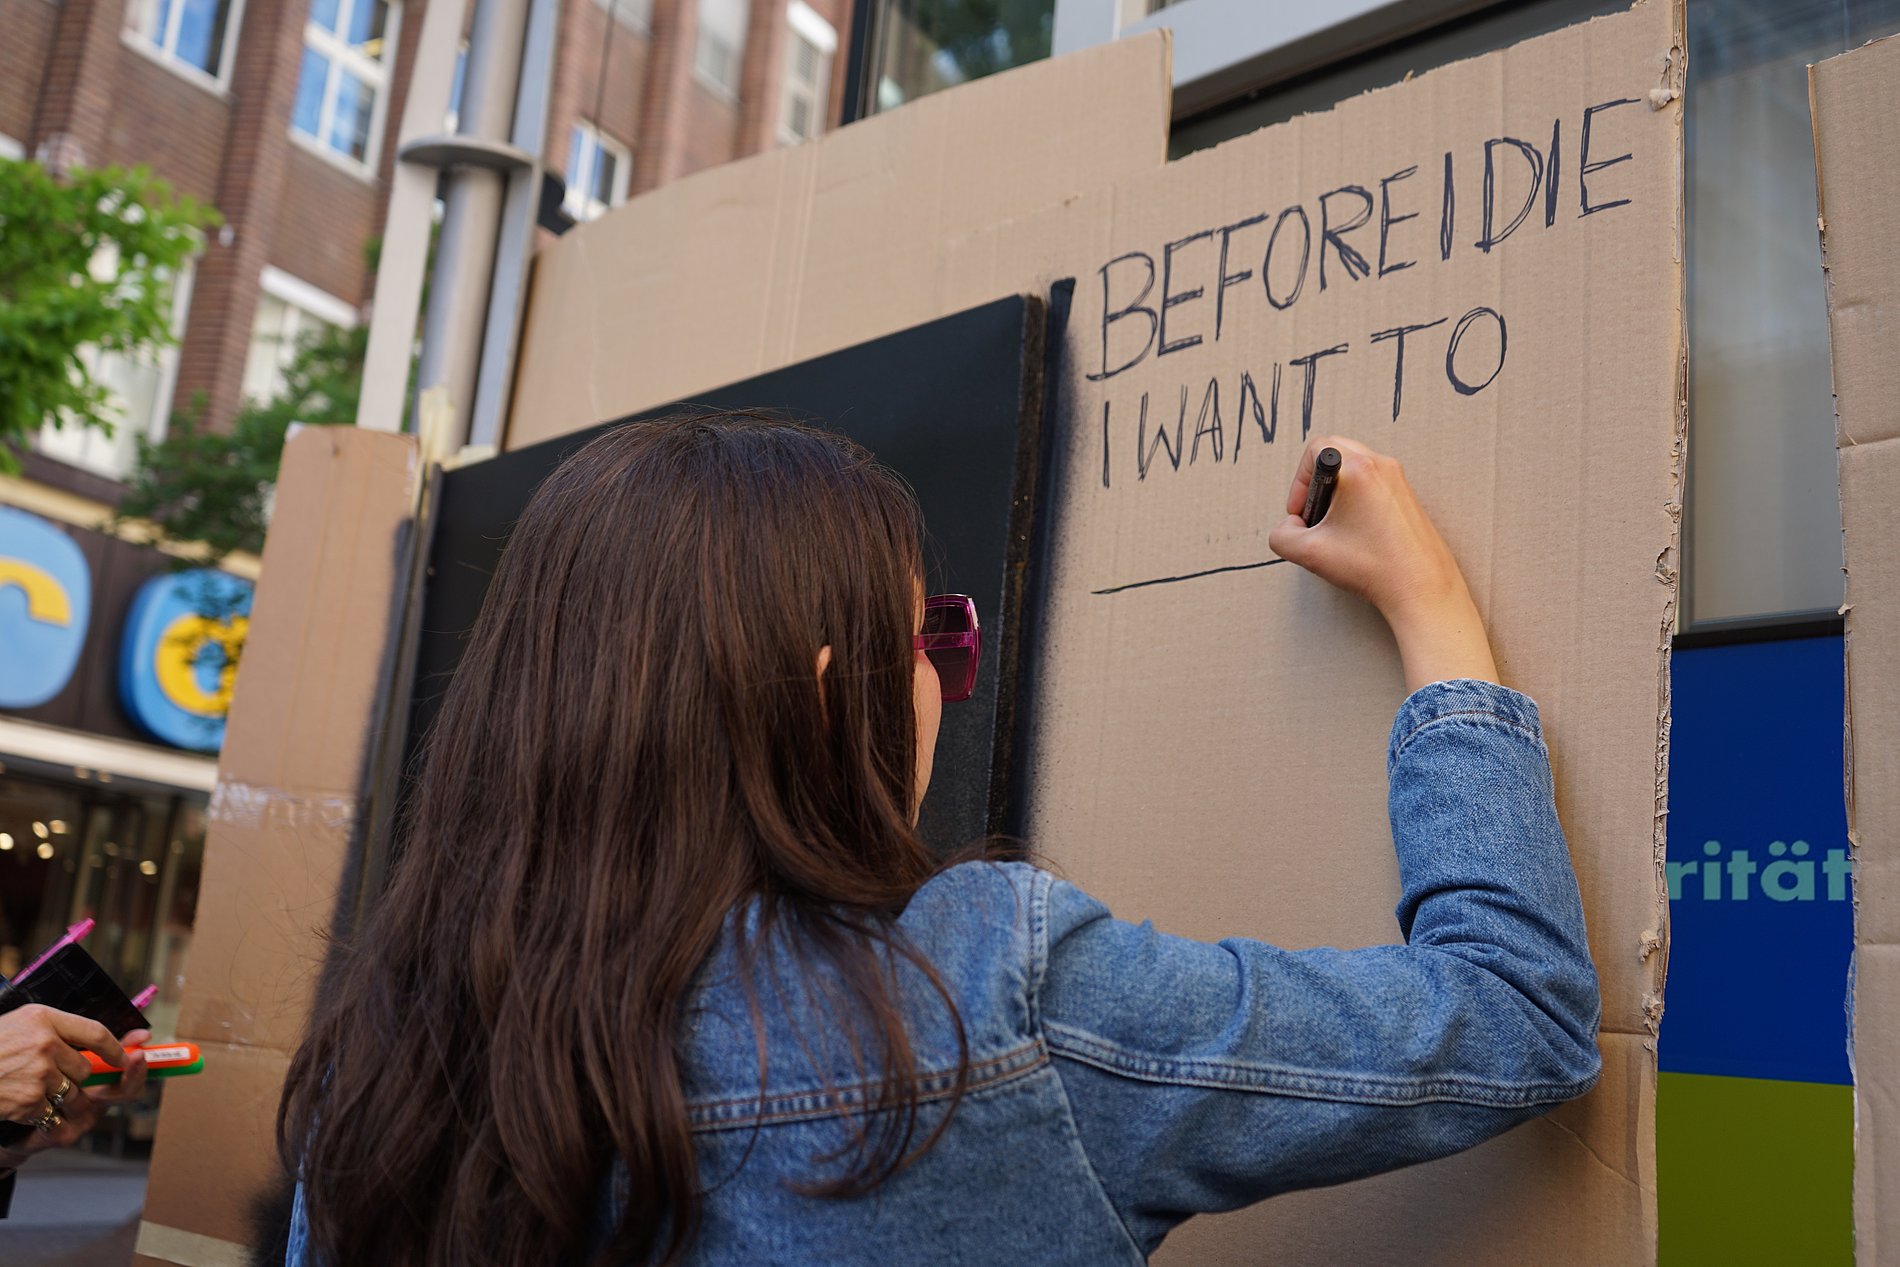 BEFORE I DIE
I WANT TO
rität